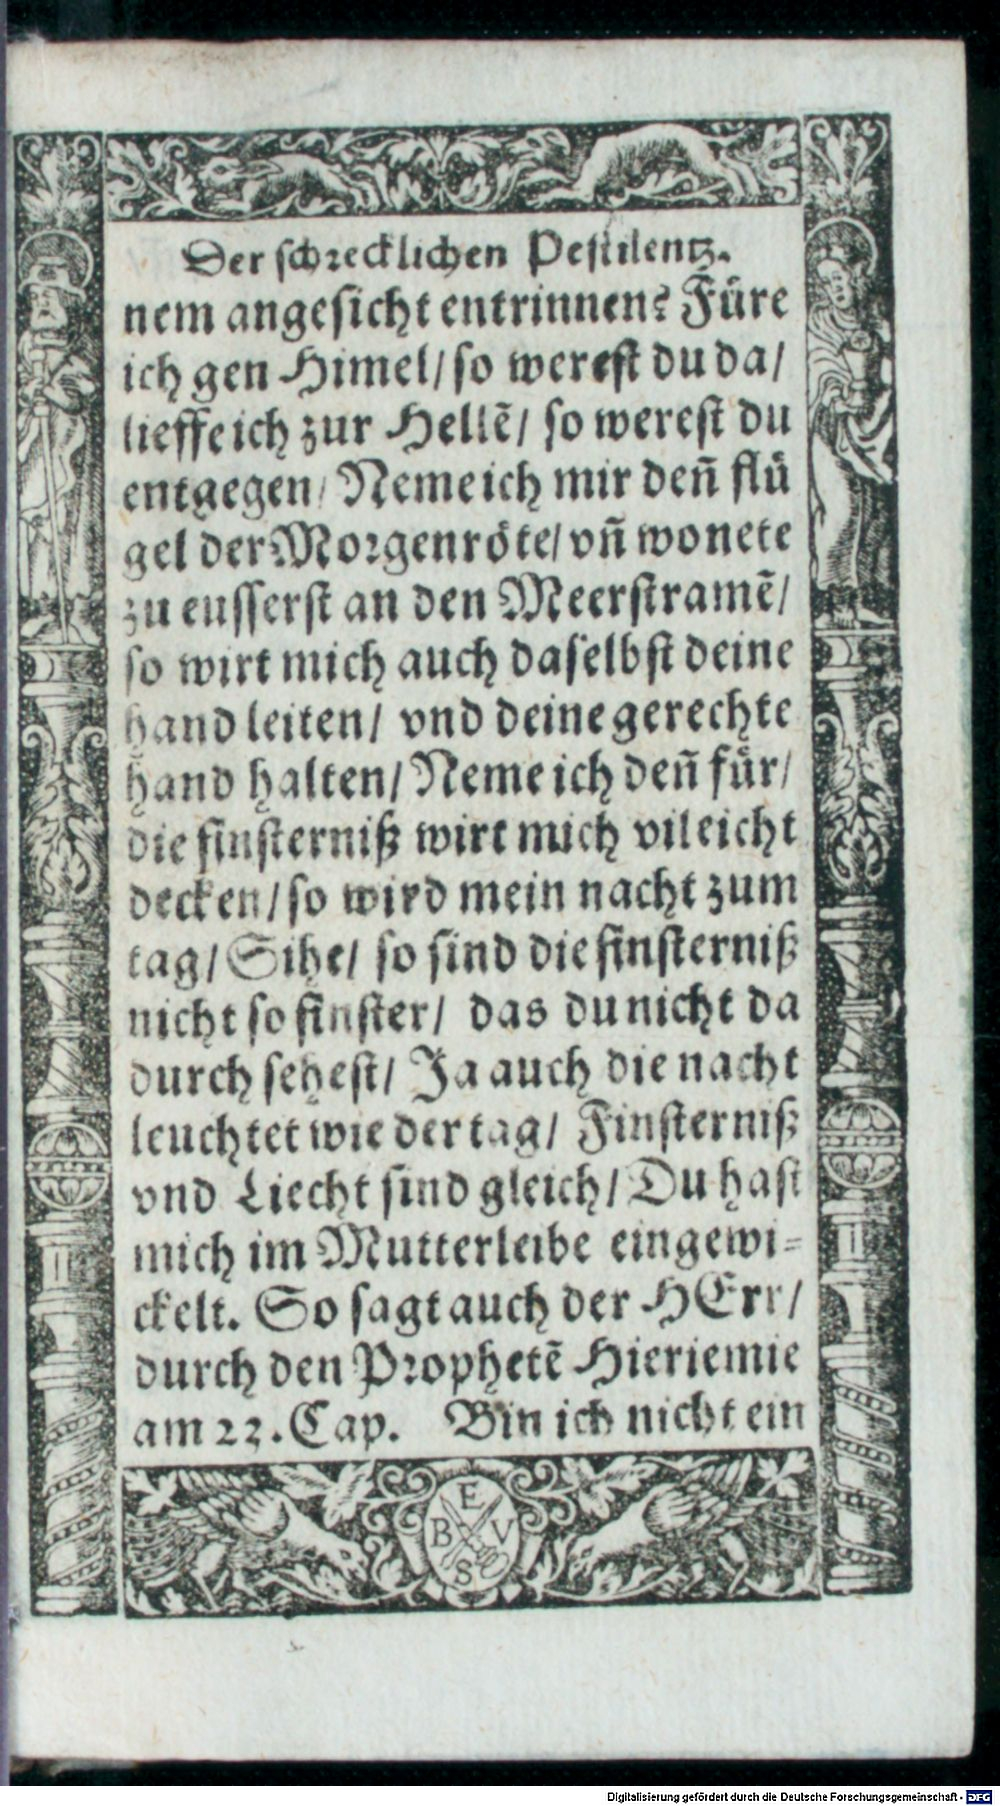 Der schrecklichen Pestilentz.
nem angesicht entrinnen? Füre
ich gen Himel/ so werest du da/
lieffe ich zur Hellẽ/ so werest du
entgegen/ Neme ich mir deñ flü
gel der Morgenröte/ vñ wonete
zu eusserst an den Meerstramẽ/
so wirt mich auch daselbst deine
hand leiten/ vnd deine gerechte
hand halten/ Neme ich deñ für/
die finsterniß wirt mich vileicht
decken/ so wird mein nacht zum
tag/ Sihe/ so sind die finsterniß
nicht so finster/ das du nicht da
durch sehest/ Ja auch die nacht
leuchtet wie der tag/ Finsterniß
vnd Liecht sind gleich/ Du hast
mich im Mutterleibe eingewi=
ckelt. So sagt auch der HErr/
durch den Prophetẽ Hieriemie
am 23. Cap. Bin ich nicht ein
E
B V
S
Digitalisierung gefördert durch die Deutsche Forschungsgemeinschaft - DFG